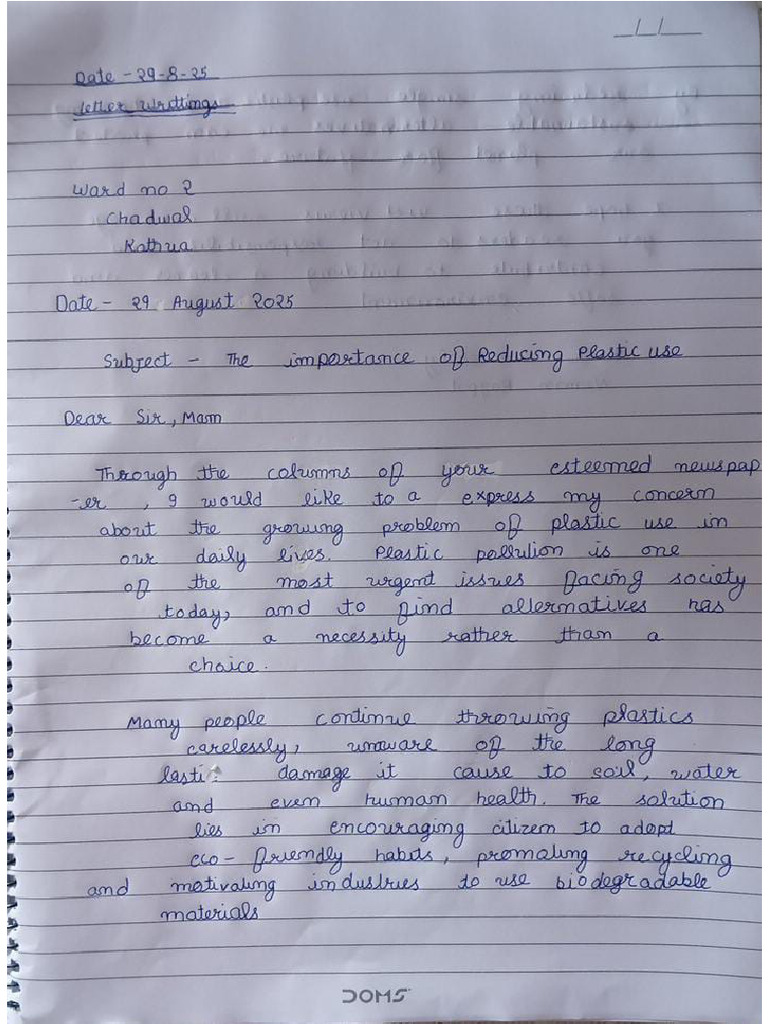 Date - 29-8-25
Letter Writtings
Ward no 2
Chadwal
Kathua
Date - 29 August 2025
Subject - The importance of Reducing Plastic use
Dear Sir, Mam
Through the columns of your esteemed newspap
-er, I would like to a express my concern
about the growing problem of plastic use in
our daily lives. Plastic pollution is one
of the most urgent issues facing society
today, and to find allermatives has
become a necessity rather than a
choice.
Mamy people continue throwing plastics
carelessly, unaware of the long
lasti damage it cause to soil, water
and even human health. The solution
lies in encouraging citizem to adopt
eco-friendly habits, promaling recycling
and motivaling industries to use biodegradable
materials
DOMS